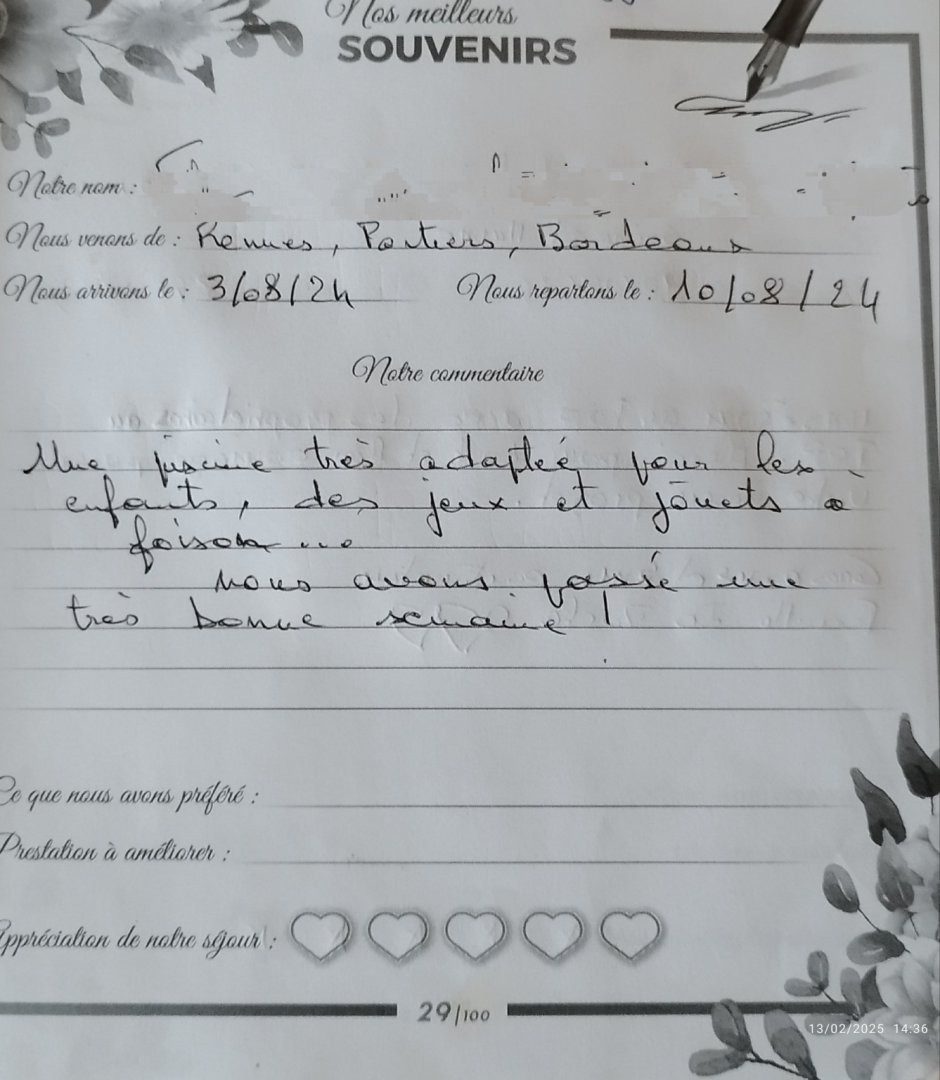 Nos meilleurs
SOUVENIRS
Notre nom :
Nous venons de : Rennes, Poitiers, Bordeaux
Nous arrivons le : 3/08/24 Nous repartons le : 10/08/24
Notre commentaire
Une piscine très adaptée pour les
enfants, des jeux et jouets à
foison ...
Nous avons passé une
très bonne semaine !
Ce que nous avons préféré :
Prestation à améliorer :
Appréciation de notre séjour :
29/100
13/02/2025 14:36